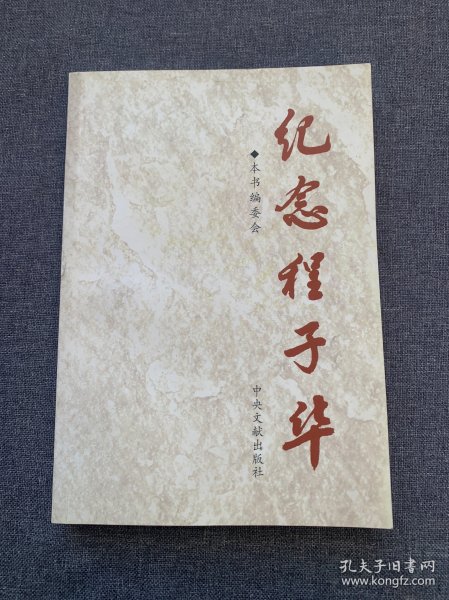 纪念程子华
◆本书编委会
中央文献出版社
孔夫子旧书网
www.kongfz.com